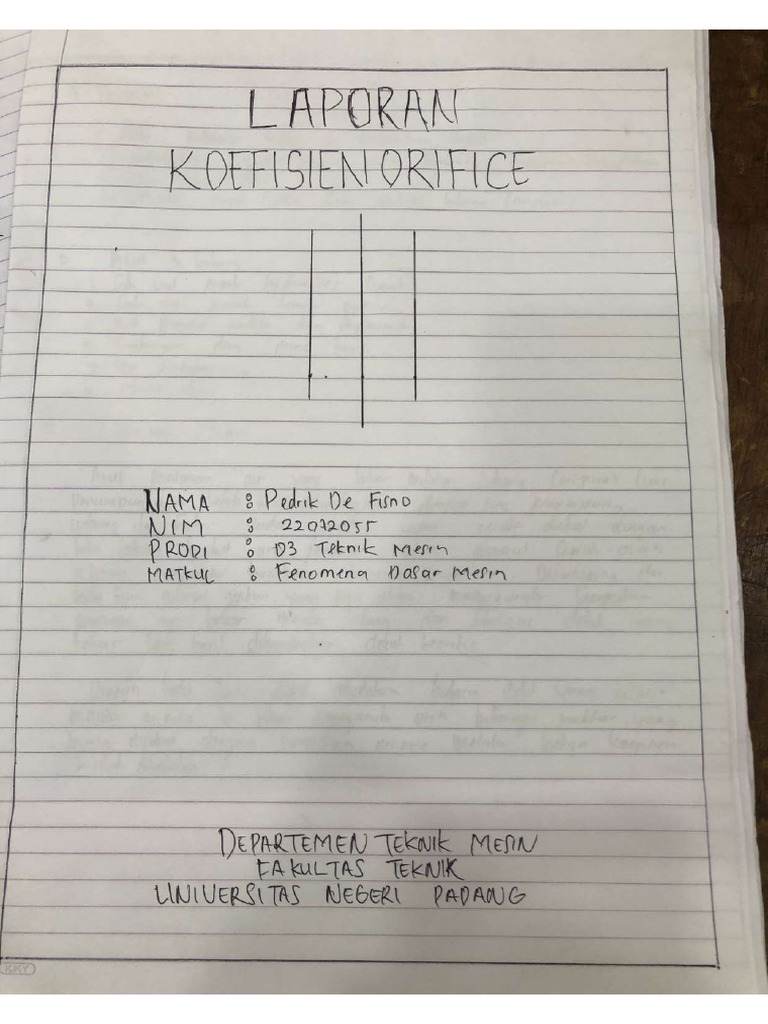 LAPORAN
KOEFFISIEN ORIFICE
NAMA : Pedrik De Fisno
NIM : 22072055
PRODI : D3 Teknik Mesin
MATKUL : Fenomena Dasar Mesin
DEPARTEMEN TEKNIK MESIN
FAKULTAS TEKNIK
UNIVERSITAS NEGERI PADANG
KKY